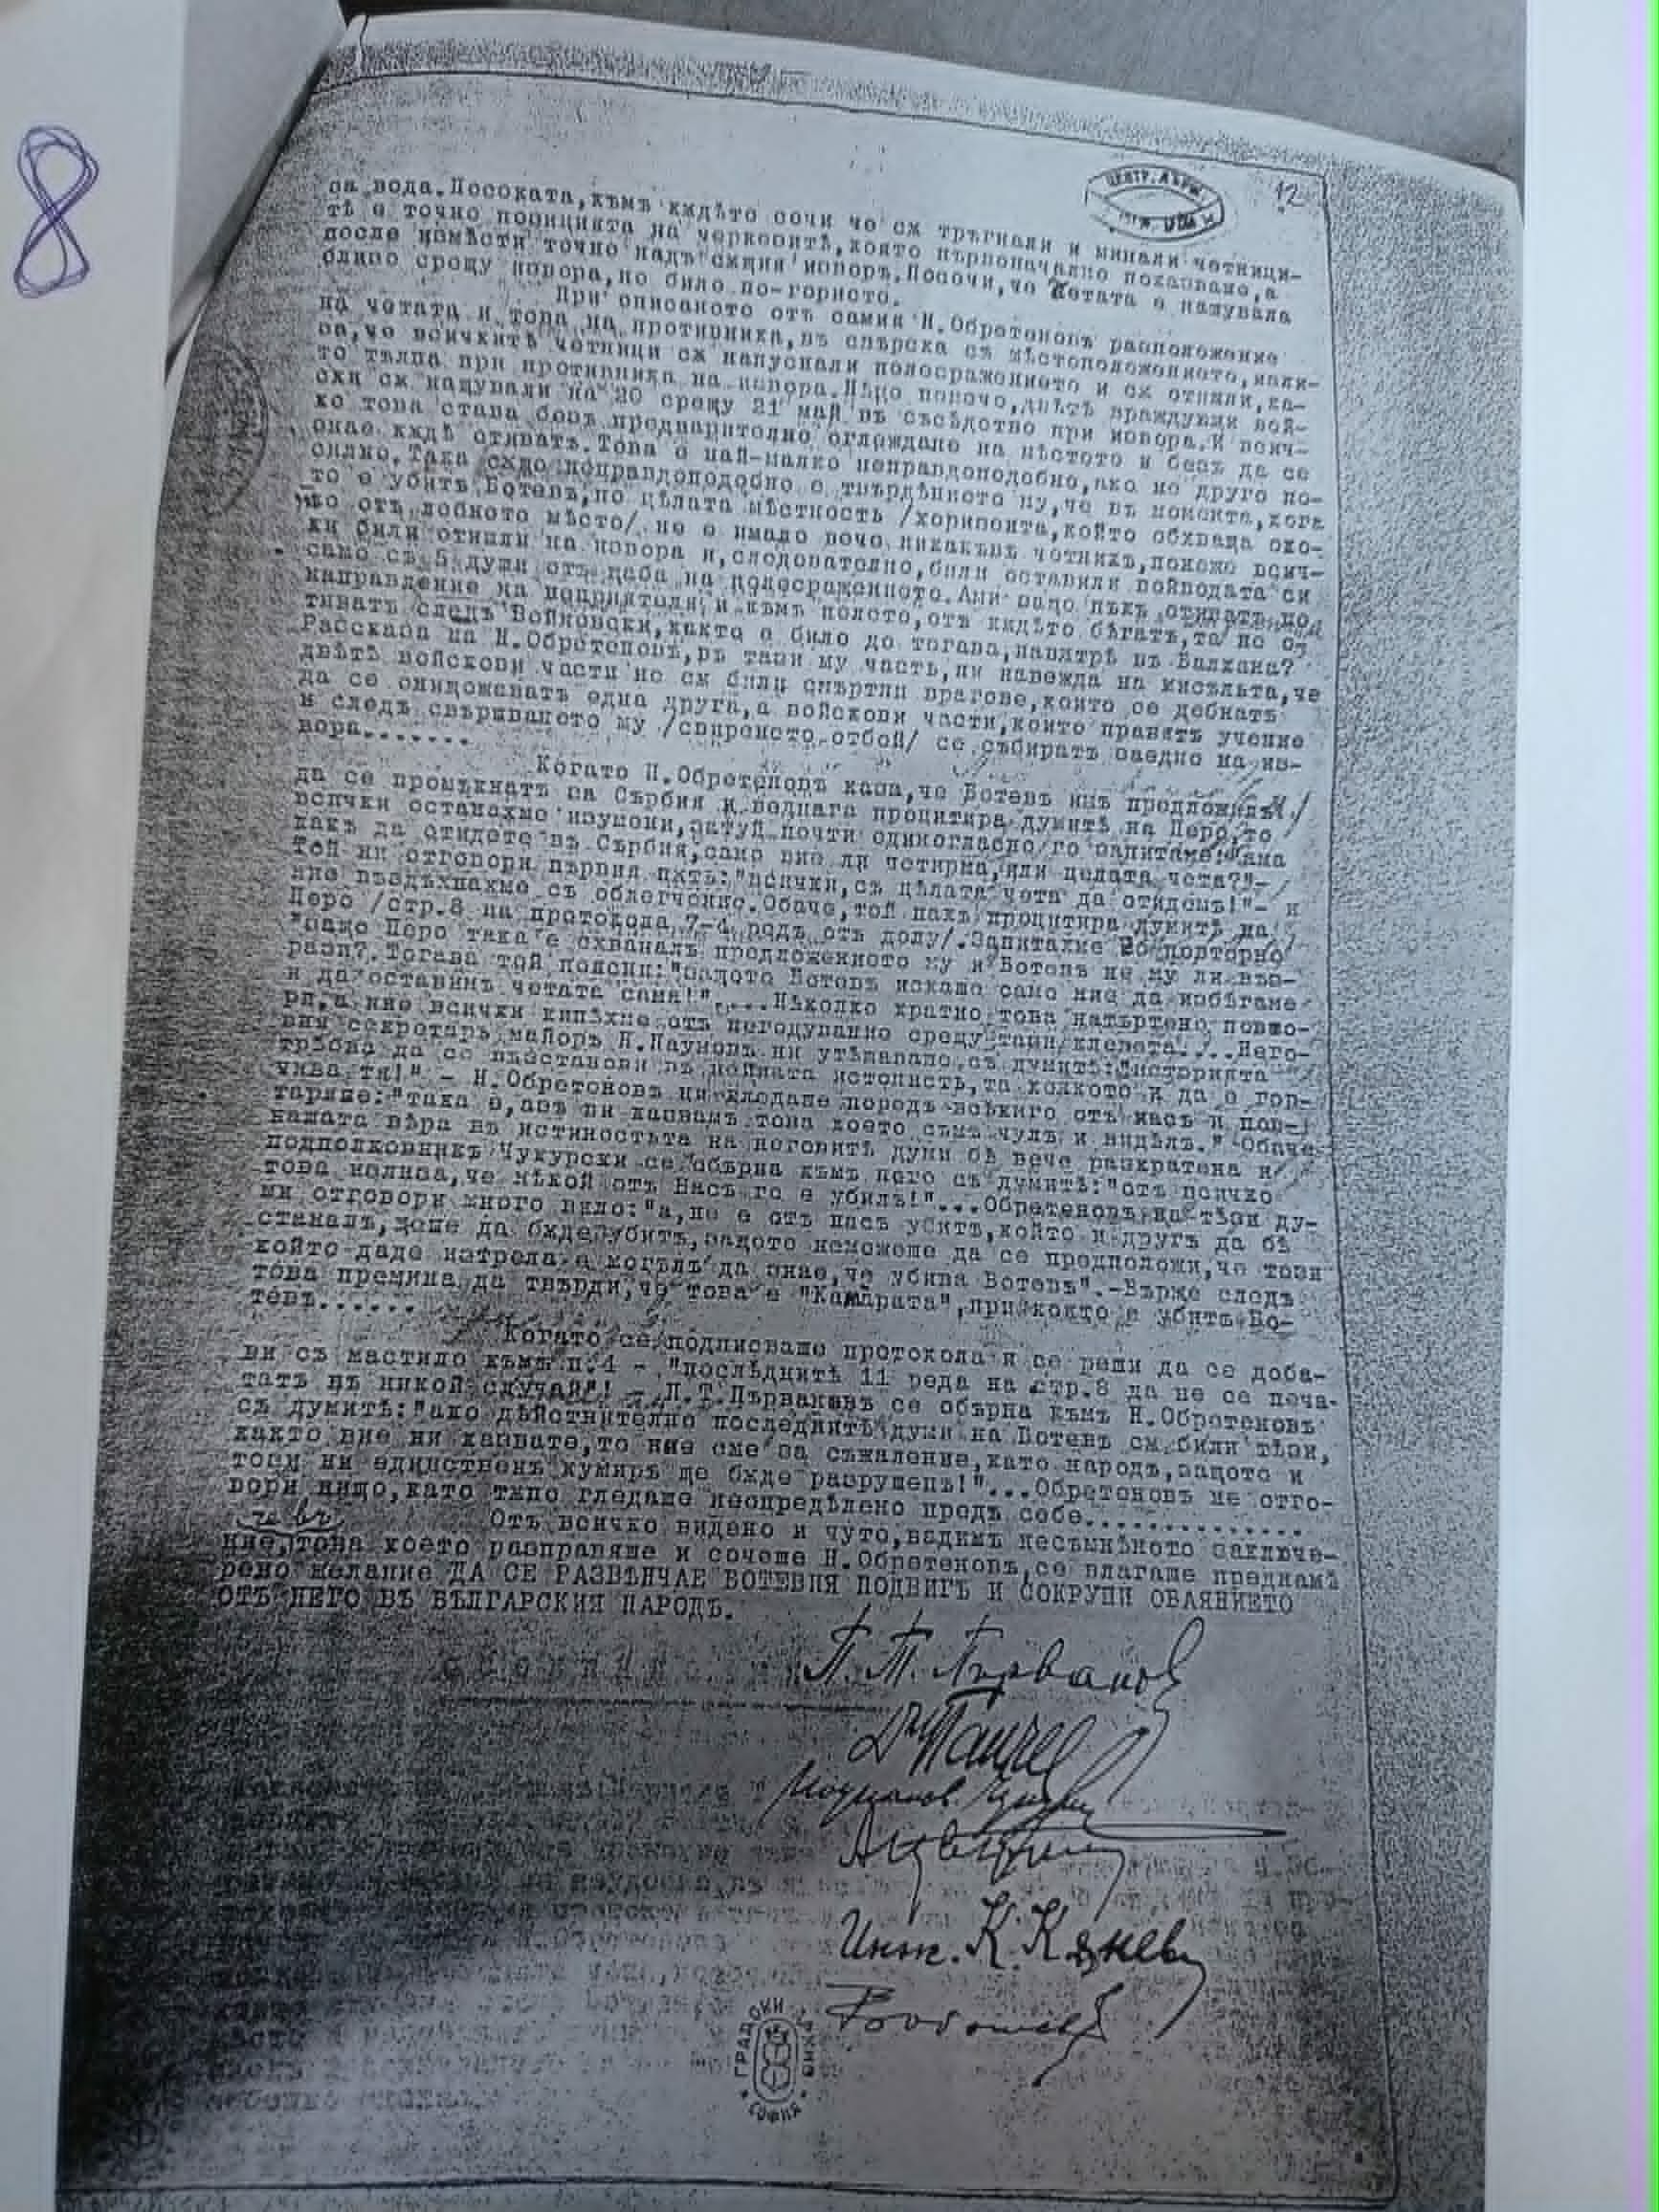 8
ЦЕНТР. ДЪРЖ.
12
за вода. Посоката, къмъ кѫдѣто сочи че сѫ тръгнали и минали четници-
тѣ е точно позицията на черкезитѣ, която първоначално показваше, а
после измѣсти точно надъ сѫщия изворъ. Посочи, че четата е нощувала
близо срещу извора, но било по-гористо.
При описаното отъ самия Н.Обретеновъ разположение
на четата и това на противника, въ свръзка съ мѣстоположението, изли-
за, че всичкитѣ четници сѫ напуснали полесражението и сѫ отишли, ка-
то тълпа при противника на извора. Нѣщо повече, дветѣ враждущи вой-
ски сѫ нощували на 20 срещу 21 май въ съсѣдство при извора. И всич-
ко това става безъ предварително оглеждане на мѣстото и безъ да се
знае кѫде отиватъ. Това е най-малко неправдоподобно, ако не друго по-
силно. Така сѫщо неправдоподобно е твърдѣнието му, че въ момента, кога
то е убитъ Ботевъ, по цѣлата мѣстность /хоризонта, който обхваща око-
то отъ лобното мѣсто/ не е имало вече никакъвъ четникъ, понеже всич-
ки били отишли на извора и, следователно, били оставили войводата си
само съ 5 души отъ щаба на полесражението. Ами защо пъкъ отиватъ по
направление на неприятеля и къмъ полето, отъ кѫдѣто бѣгатъ, та не о-
тиватъ следъ Войновски, както е било до тогава, навѫтрѣ въ Балкана?
Разсказа на Н.Обретеновъ, въ тази му часть, ни навежда на мисъльта, че
дветѣ войскови части не сѫ били смъртни врагове, които се дебнатъ
да се унищожаватъ една друга, а войскови части, които правятъ учение
и следъ свършването му /свирнето отбой/ се събиратъ заедно на из-
вора.......
Когато Н.Обретеновъ каза, че Ботевъ имъ предложилъ
да се промъкнатъ за Сърбия и веднага процитира думитѣ на Перо, то
всички останахме изумени, затуй почти единогласно го запитахме:
какъ да отидете въ Сърбия, само вие ли четирма, или целата чета?"-
Той ни отговори първия пѫть: "всички, съ цѣлата чета да отидемъ!"- и
ние въздъхнахме съ облегчение. Обаче, той пакъ процитира думитѣ на
Перо /стр.8 на протокола, 7-4 редъ отъ долу/. Запитахме го повторно
"защо Перо така е схваналъ предложението му и Ботевъ не му ли въз-
рази?. Тогава той поясни: "защото Ботевъ искаше само ние да избѣгаме
и да оставимъ четата сама!".... Нѣколко кратно това натъртено повто-
ри, а ние всички кипѣхме отъ негодувание срещу тази клевета!... Него-
вия секретарь майоръ Н.Пауновъ ни утѣшаваше съ думитѣ: "историята
трѣбва да се възстанови въ нейната истинность, та колкото и да е гор-
чива тя!" - Н.Обретеновъ ни гледаше поредъ всѣкиго отъ насъ и пов-
таряше: "така е, азъ ви казвамъ това което съмъ чулъ и видѣлъ." Обаче
нашата вѣра въ истиностьта на неговитѣ думи бѣ вече разклатена и
подполковникъ Чукурски се обърна къмъ него съ думитѣ: "отъ всичко
това излиза, че нѣкой отъ Васъ го е убилъ!"... Обретеновъ на тѣзи ду-
ми отговори много вяло: "а, не е отъ насъ убитъ, който и другъ да бѣ
станалъ, щеше да бѫде убитъ, защото неможеше да се предположи, че този
който даде изтрела е могълъ да знае, че убива Ботевъ".-Върже следъ
това премина да твърди, че това е "Камарата", при която е убитъ Бо-
тевъ......
Когато се подписваше протокола и се реши да се доба-
ви съ мастило къмъ п.4 - "последнитѣ 11 реда на стр.8 да не се печа-
татъ въ никой случай"! - П.Т.Първановъ се обърна къмъ Н.Обретеновъ
съ думитѣ: "ако дѣйствително последнитѣ думи на Ботевъ сѫ били тѣзи,
както вие ни казвате, то ние сме за съжаление, като народъ, защото и
този ни единственъ кумиръ ще бѫде разрушенъ!"... Обретеновъ не отго-
вори нищо, като тѫпо гледаше неопредѣлено предъ себе..............
Отъ всичко видено и чуто, вадимъ несъмнѣното заключе-
ние, че въ това което разправяше и сочеше Н.Обретеновъ, се влагаше преднамѣ
рено желание ДА СЕ РАЗВѢНЧАЕ БОТЕВИЯ ПОДВИГЪ И СОКРУШИ ОБАЯНИЕТО
ОТЪ НЕГО ВЪ БЪЛГАРСКИЯ НАРОДЪ.
П. Т. Първановъ
Инж. К. Кяневъ
ГРАДСКИ АРХИВ
СОФИЯ